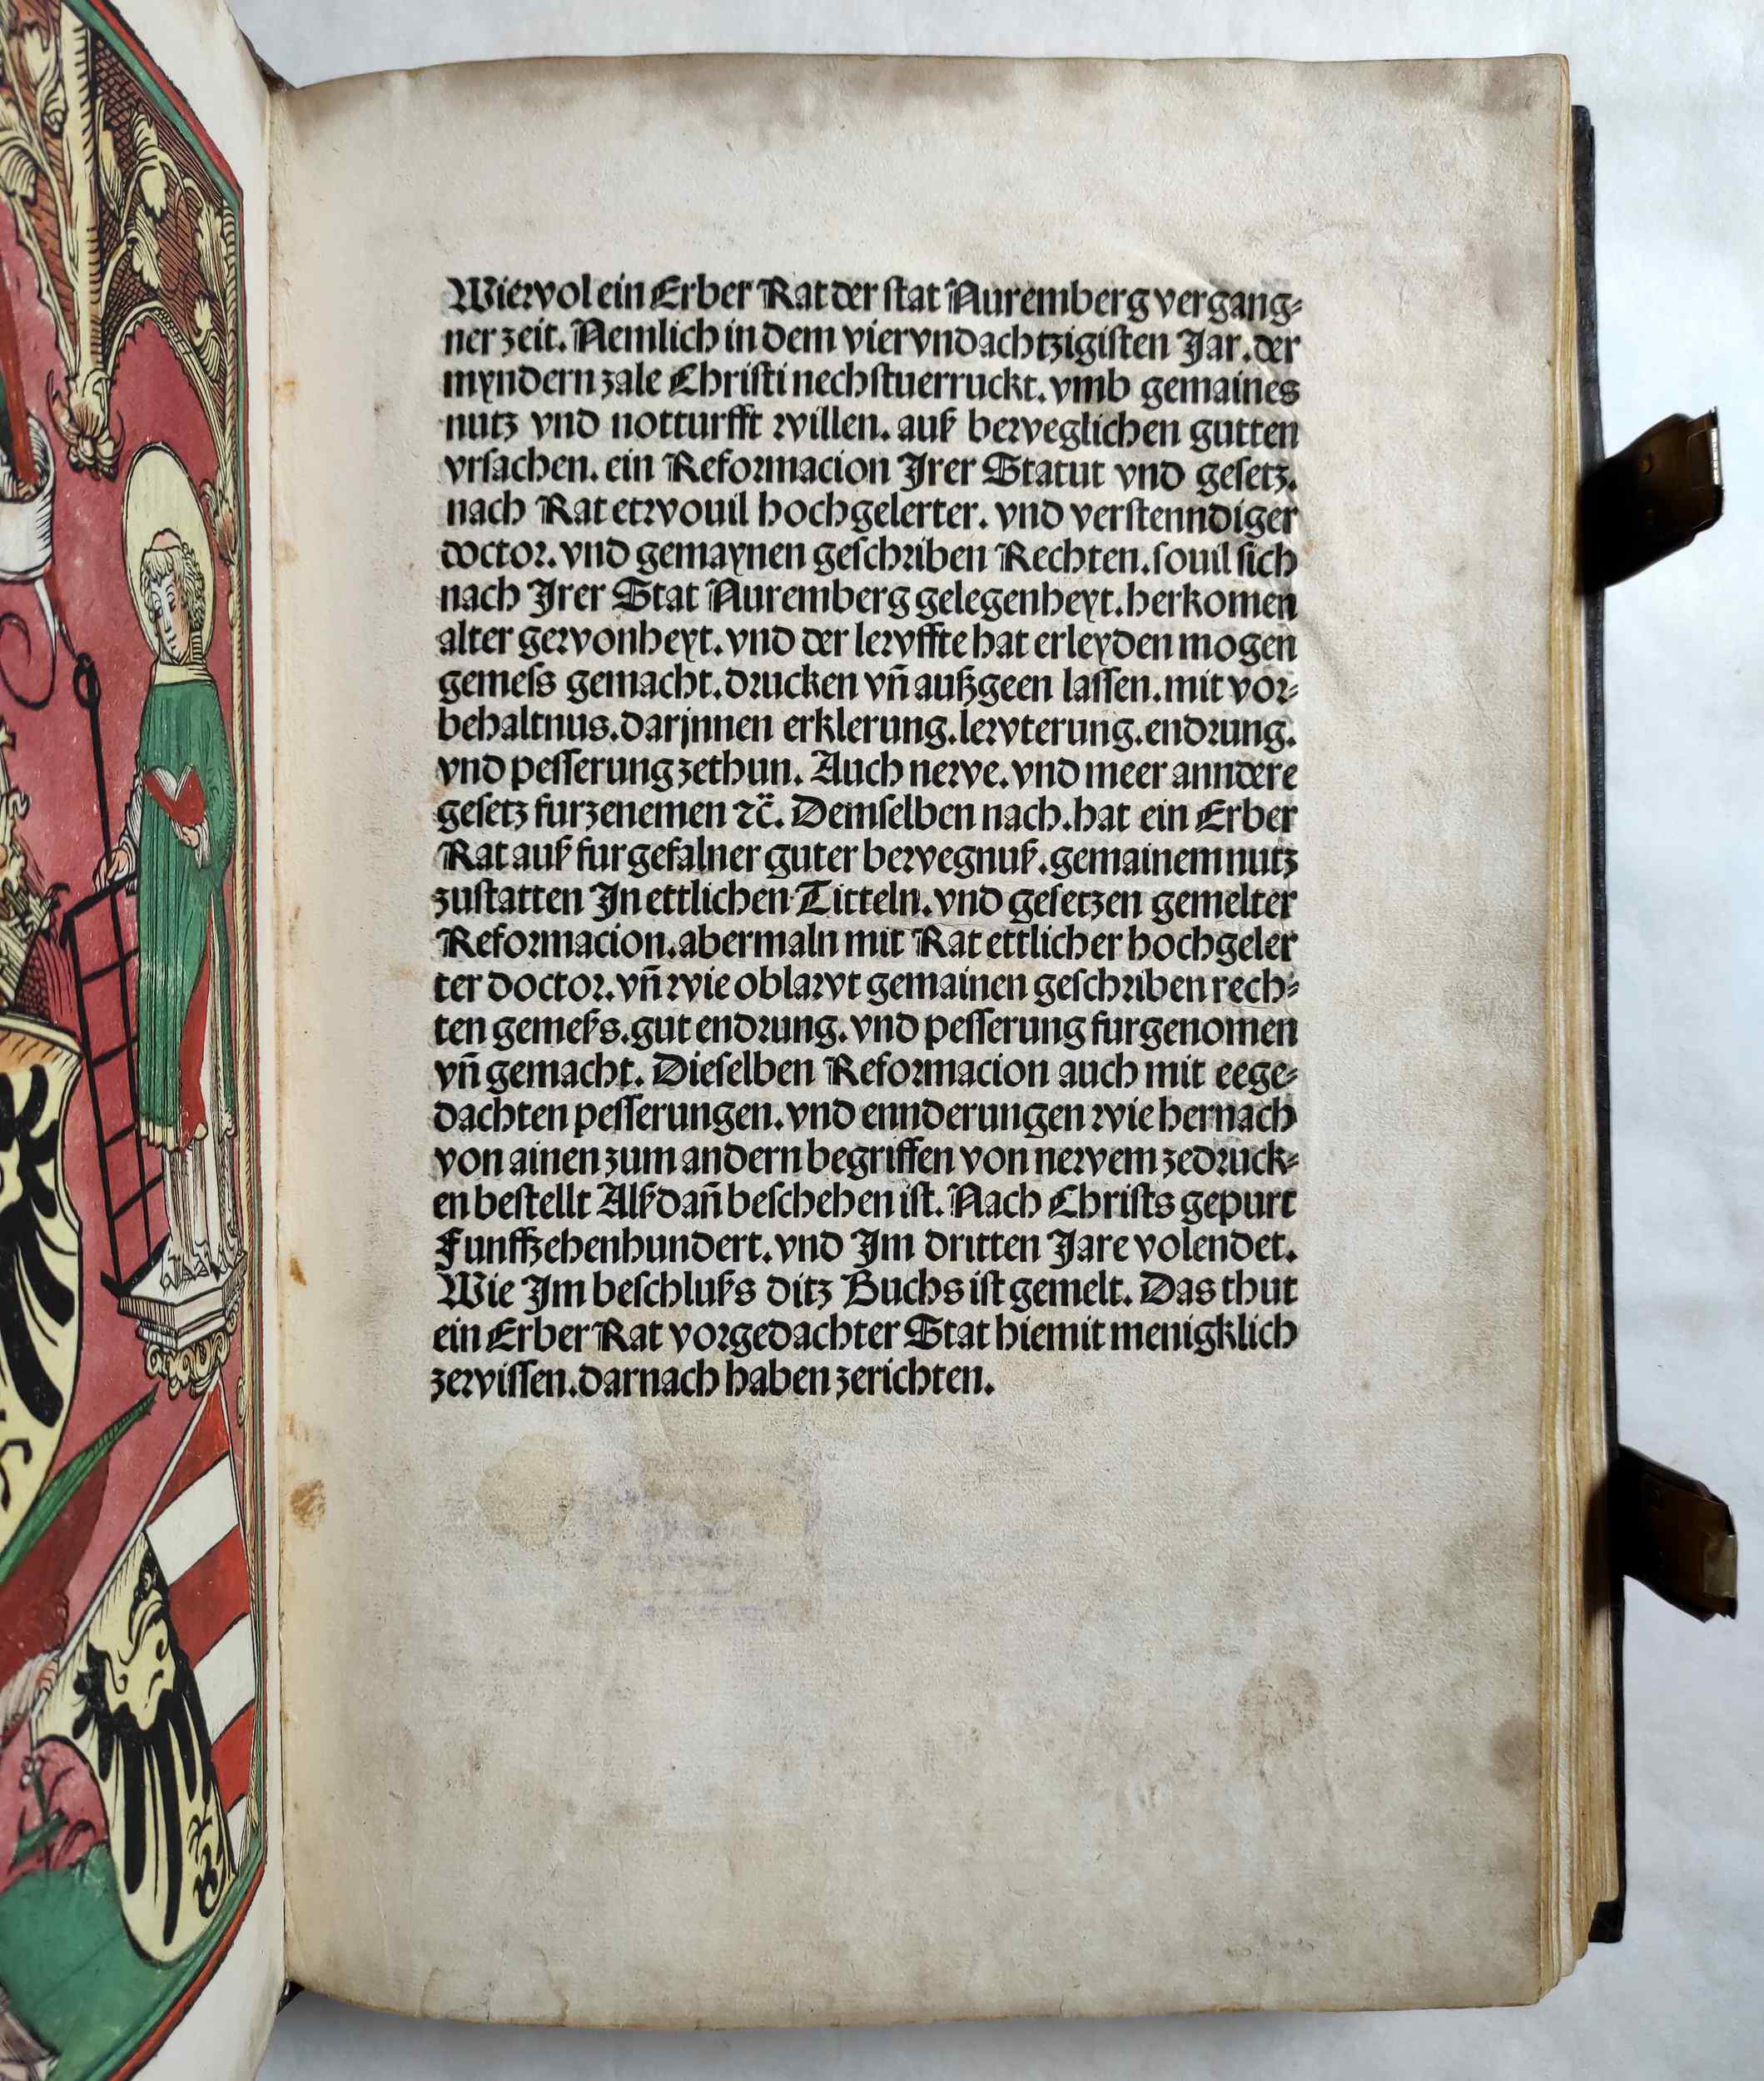 Wiewol ein Erber Rat der stat Nuremberg vergang⸗
ner zeit. Nemlich in dem viervndachtzigisten Jar. der
myndern zale Christi nechstuerruckt. vmb gemaines
nutz vnd notturfft willen. auß beweglichen gutten
vrsachen. ein Reformacion Jrer Statut vnd gesetz.
nach Rat etwouil hochgelerter. vnd verstenndiger
doctor. vnd gemaynen geschriben Rechten. souil sich
nach Jrer Stat Nuremberg gelegenheyt. herkomen
alter gewonheyt. vnd der lewffte hat erleyden mogen
gemess gemacht. drucken vñ außgeen lassen. mit vor⸗
behaltnus. darjnnen erklerung. lewterung. endrung.
vnd pesserung zethun. Auch newe. vnd meer anndere
gesetz furzenemen ⁊c̈. Demselben nach. hat ein Erber
Rat auß furgefalner guter bewegnuß. gemainem nutz
zustatten Jn ettlichen Titteln. vnd gesetzen gemelter
Reformacion. abermaln mit Rat ettlicher hochgeler
ter doctor. vñ wie oblawt gemainen geschriben rech⸗
ten gemeßs. gut endrung. vnd pesserung furgenomen
vñ gemacht. Dieselben Reformacion auch mit eege⸗
dachten pesserungen. vnd ennderungen wie hernach
von ainen zum andern begriffen von newem zedruck⸗
en bestellt Alßdañ beschehen ist. Nach Christs gepurt
Funffzehenhundert. vnd Jm dritten Jare volendet.
Wie Jm beschlußs ditz Buchs ist gemelt. Das thut
ein Erber Rat vorgedachter Stat hiemit menigklich
zewissen. darnach haben zerichten.